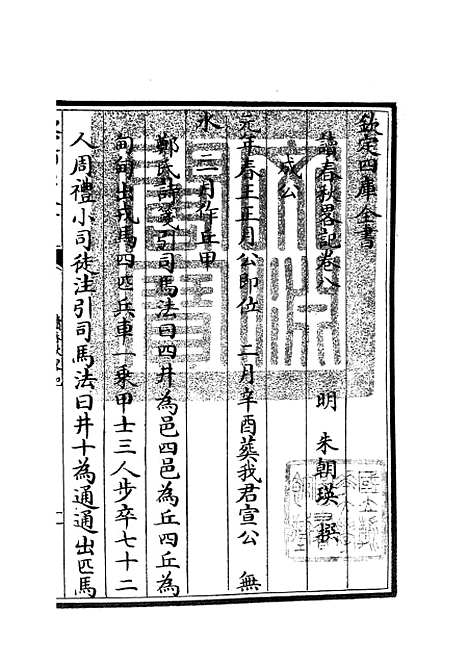 欽定四庫全書
讀春秋畧記卷八
明 朱朝瑛 撰
成公
元年春王正月公即位 二月辛酉葬我君宣公 無
氷 三月作丘甲
鄭氏詩箋引司馬法曰四井為邑四邑為丘四丘為
甸甸出戎馬四匹兵車一乘甲士三人步卒七十二
人周禮小司徒注引司馬法曰井十為通通出匹馬